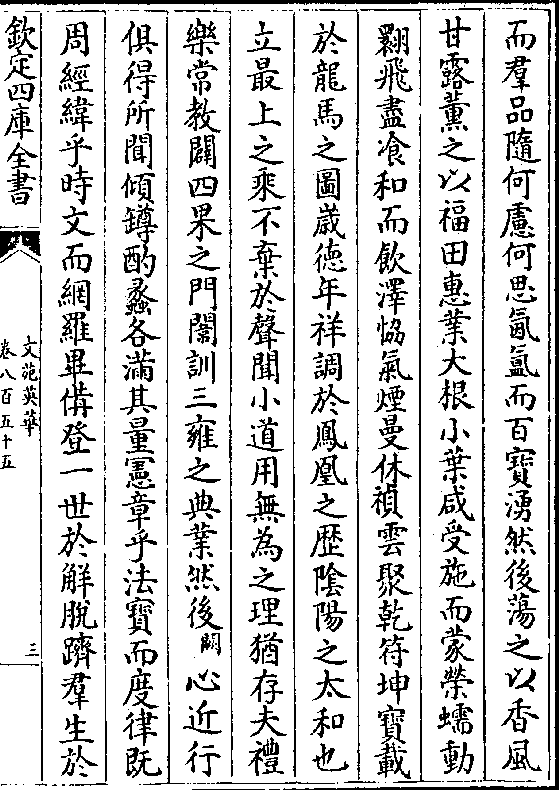 而羣品隨何慮何思氤氳而百寶湧然後蕩之以香風
甘露薰之以福田惠業大根小葉咸受施而蒙榮蠕動
翾飛盡飡和而飲澤恊氣煙曼休禎雲聚乾符坤寶載
於龍馬之圖嵗德年祥調於鳳凰之歴隂陽之太和也
立最上之乘不棄於聲聞小道用無為之理猶存夫禮
樂常教闢四果之門闡訓三雍之典業然後闕心近行
俱得所聞傾罇酌蠡各滿其量憲章乎法寶而度律既
周經緯乎時文而網羅畢備登一世於解脫躋羣生於
欽定四庫全書
文苑英華
卷八百五十五
三